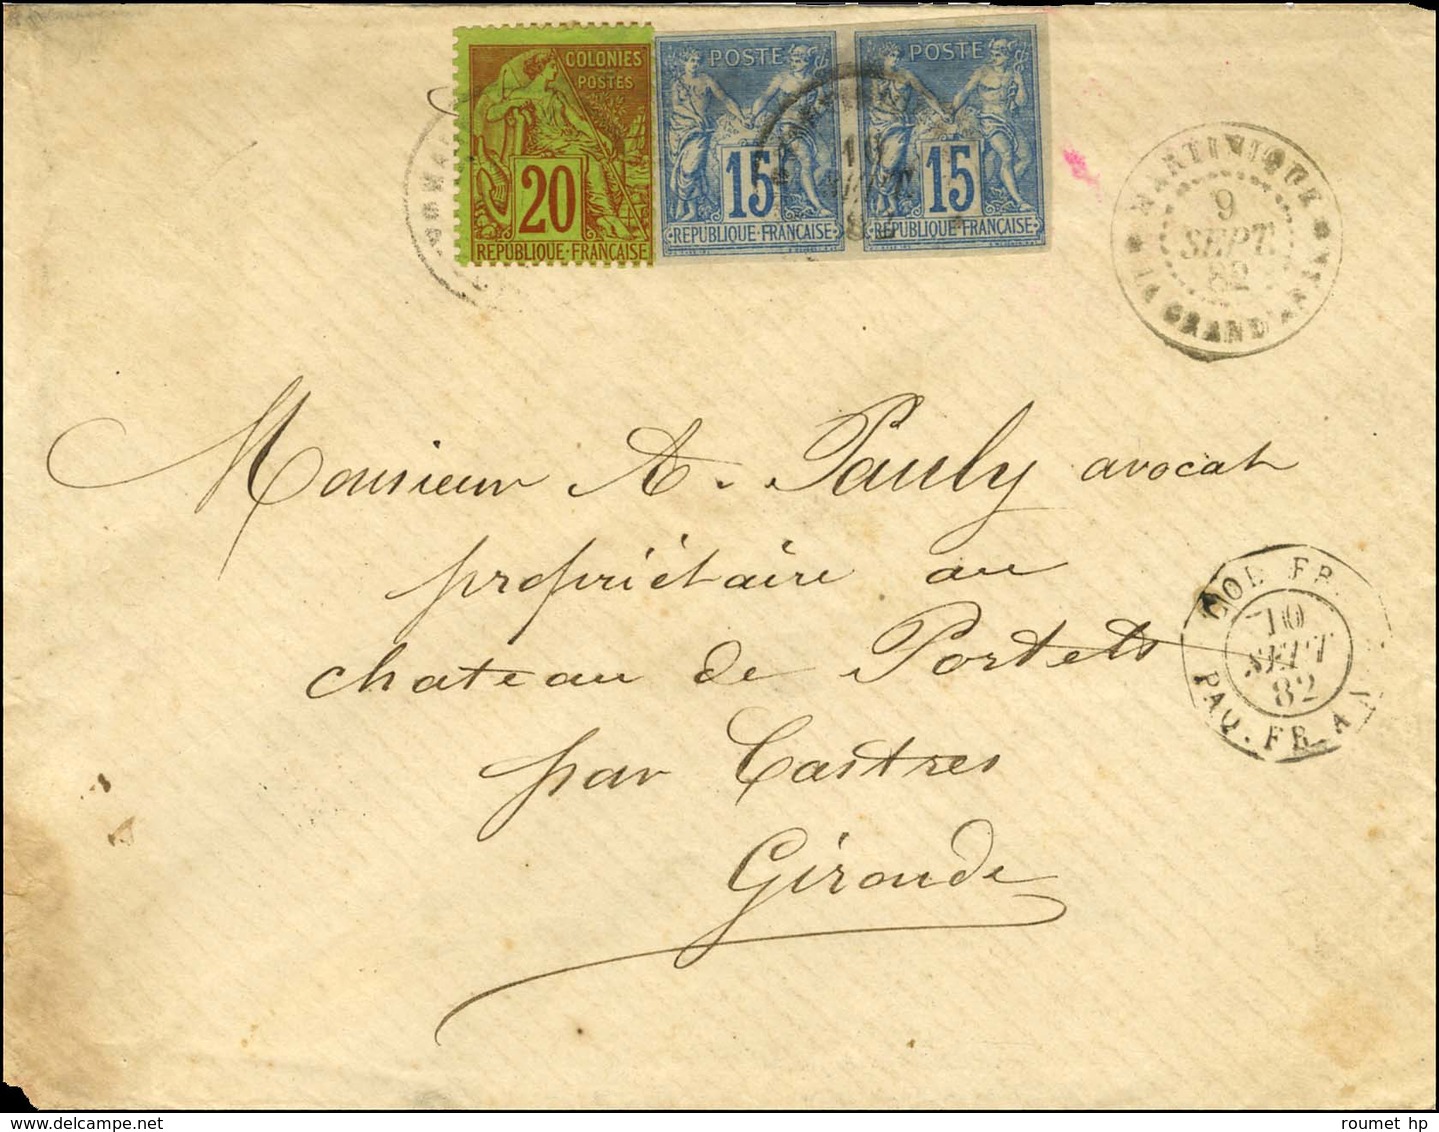 COLONIES
POSTES
20
REPUBLIQUE FRANCAISE
POSTE
15
REPUBLIQUE FRANCAISE
POSTE
15
REPUBLIQUE FRANCAISE
10
SEPT
MARTINIQUE
9
SEPT.
82
GRAND'
Monsieur A. Pauly avocat
propriétaire au
chateau de Portets
par Castres
Gironde
COL. FR.
10
SEPT
82
PAQ. FR. A
roumet hp